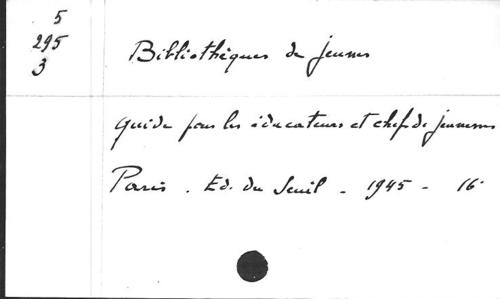 5
295
3
Bibliothèques de jeunes
Guide pour les éducateurs et chefs de jeunesses
Paris. Ed. du Seuil - 1945 - 16°